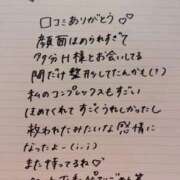 口コミありがとう♡
顔面ほめられすぎて
多分H様とお会いしてる
間だけ整形してたんかも(!)
私のコンプレックスもすごい
ほめてくれて すごくうれしかったし
救われたみたいな感情に
なったよー(;_;)
また待ってるね♡